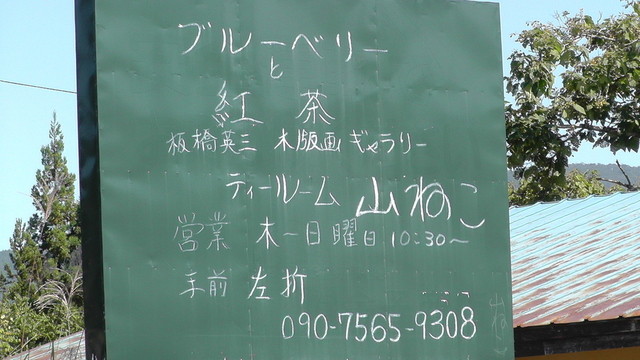 ブルーベリー
と
紅 茶
板橋英三 木版画 ギャラリー
ティールーム 山ねこ
営業 木-日曜日 10:30~
手前 左折
090-7565-9308